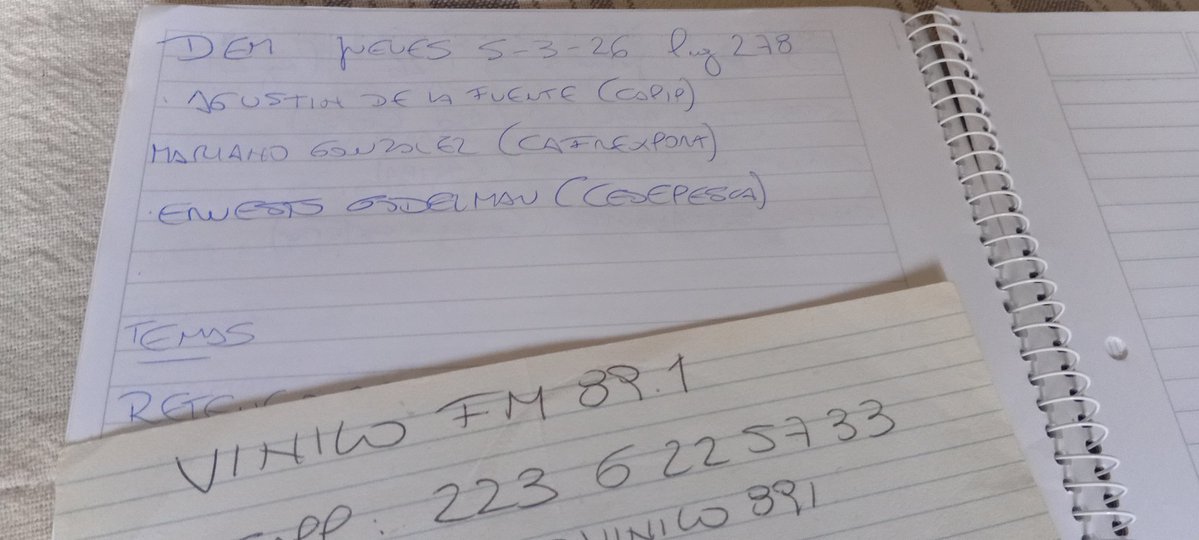 DEM JUEVES 5-3-26 Pag 278
· AGUSTIN DE LA FUENTE (COPIP)
MARIANO GONZALEZ (CAFREXPORT)
· ERNESTO GODELMAN (CEDEPESCA)
TEMAS
VINILO FM 89.1
: 223 6225733
VINILO 89.1